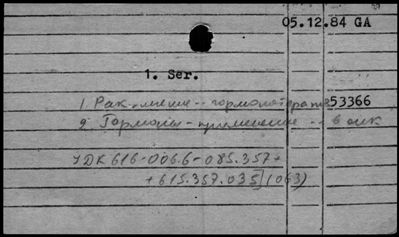 05.12.84 GA
1. Ser.
1. Рак - лечение - гормонотерапия 53366
2. Гормоны - применение - в онк
УДК 616-006.6-085.357+
+615.357.035](063)